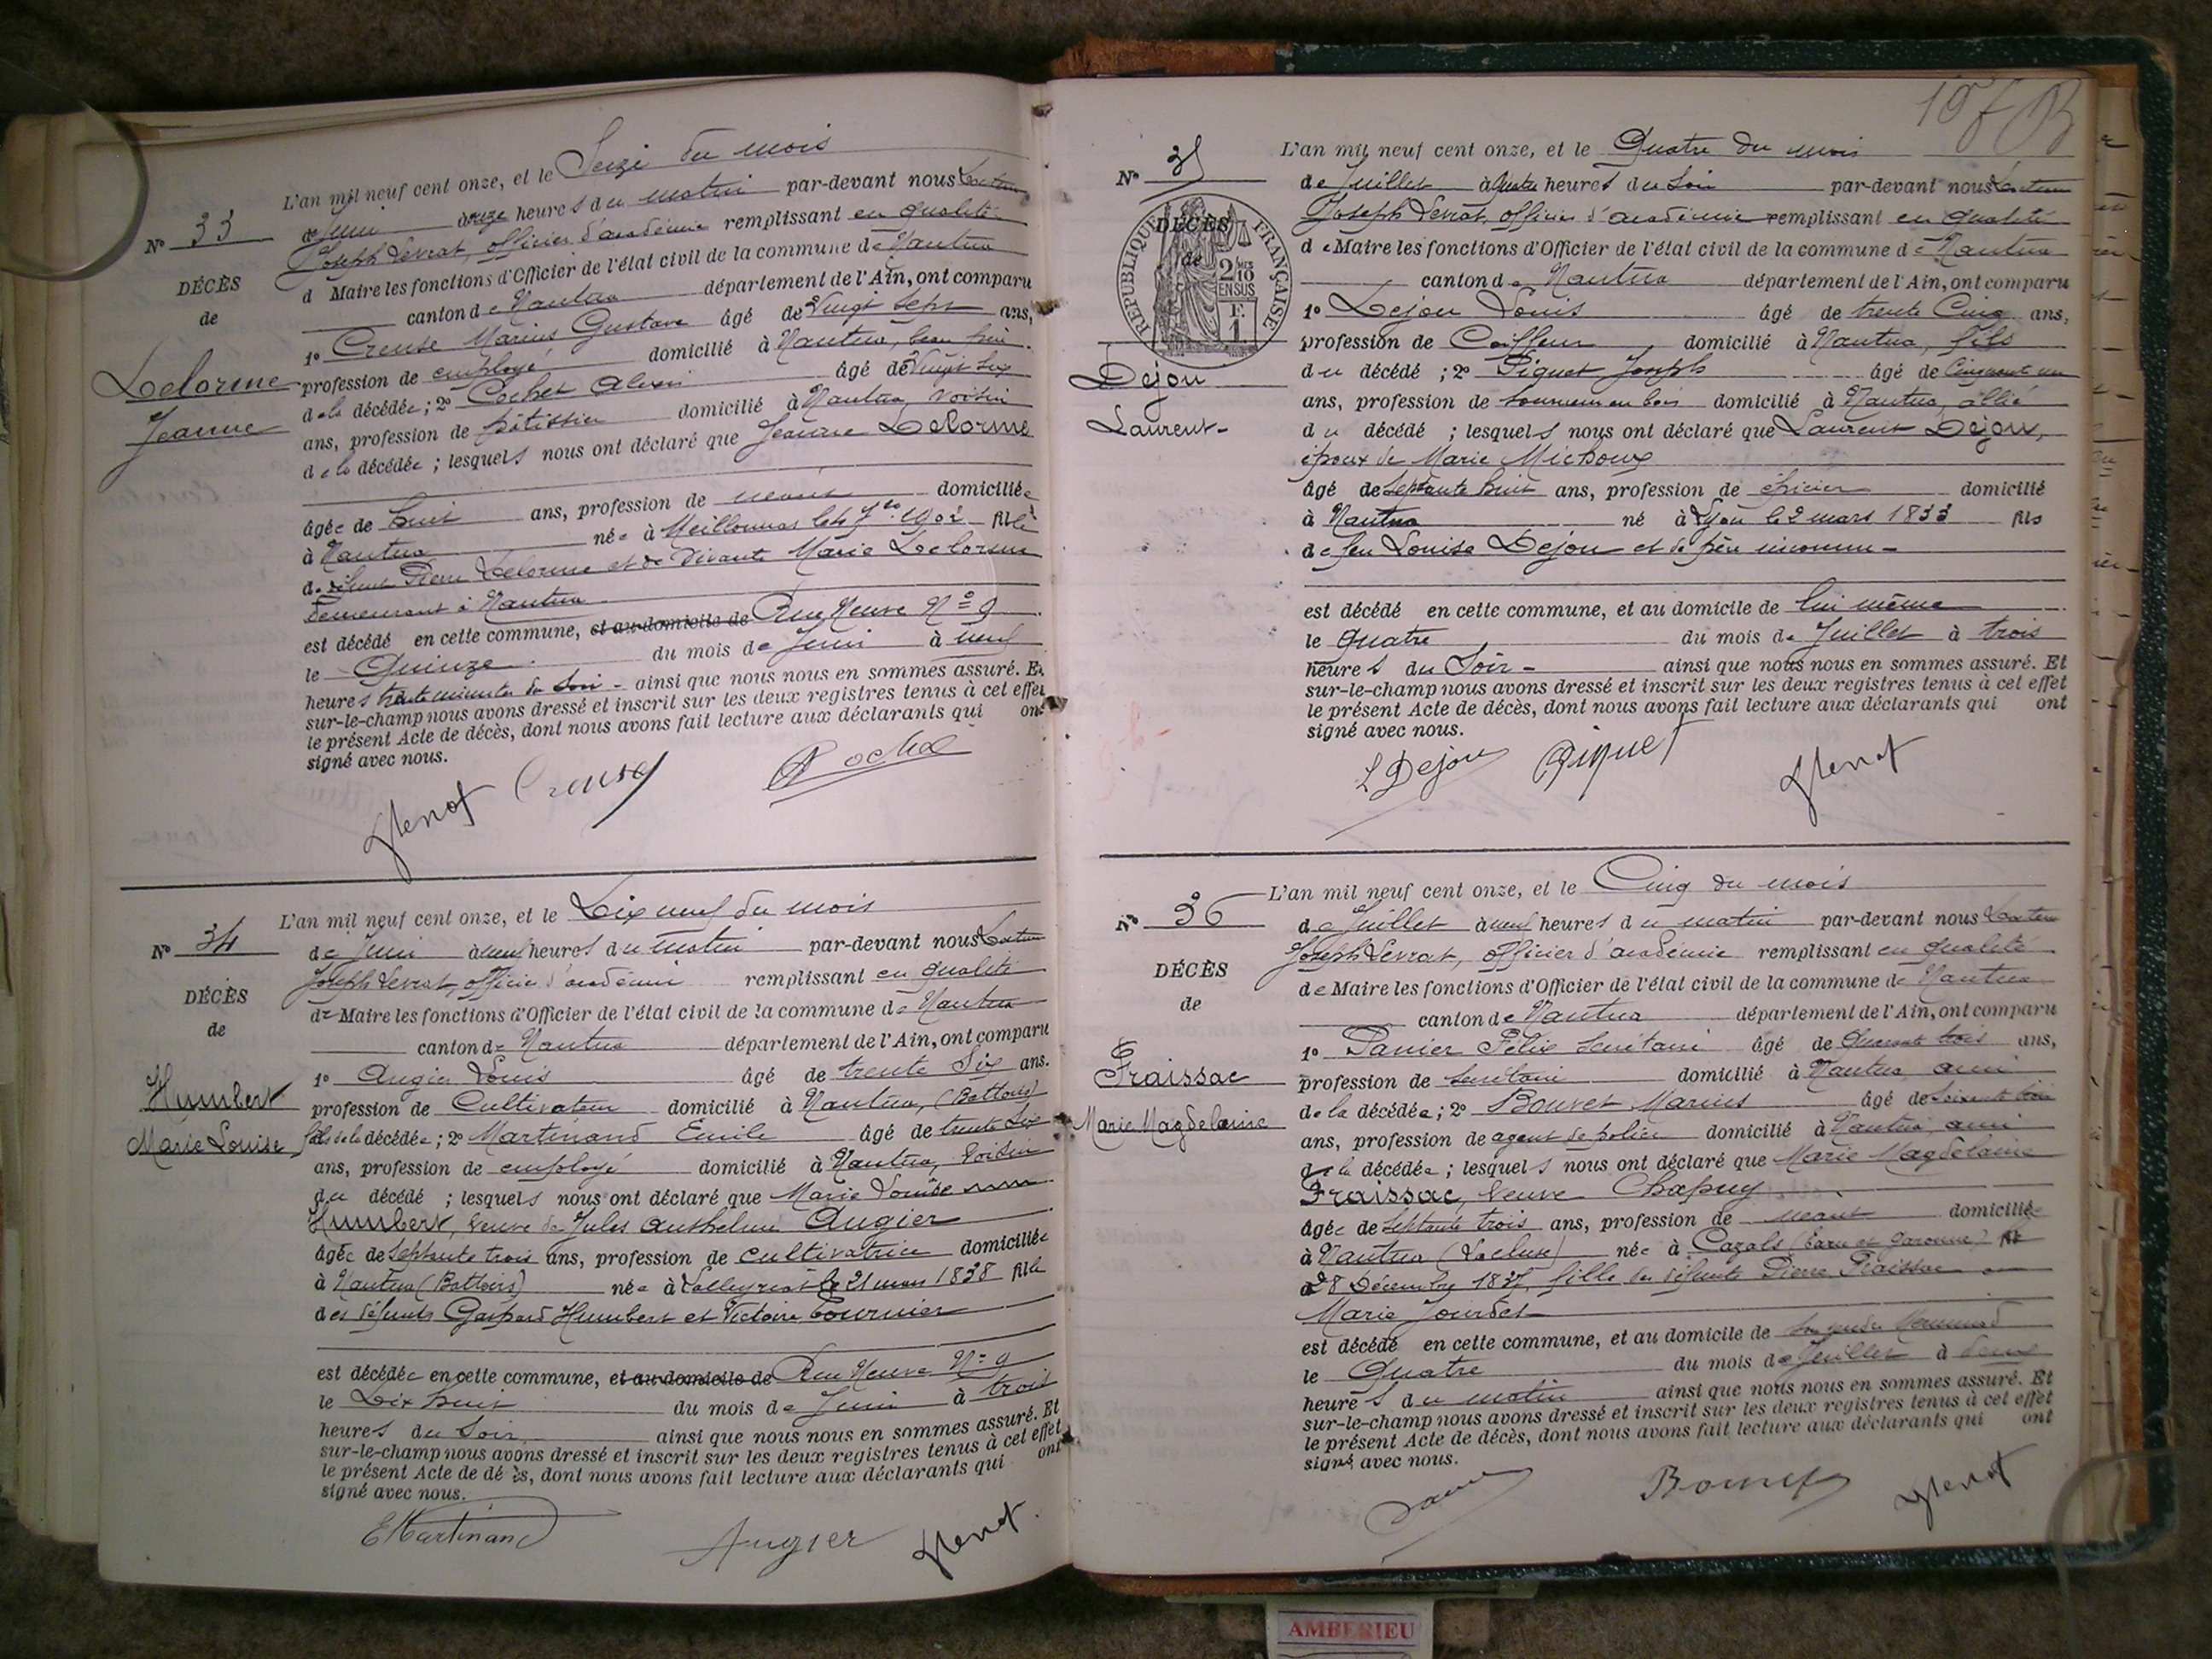 L'an mil neuf cent onze, et le Seize du mois
de Juin à onze heures du matin par-devant nous Docteur
Joseph Levrat, officier d'académie remplissant en qualité
d Maire les fonctions d'Officier de l'état civil de la commune de Nantua
canton de Nantua département de l'Ain, ont comparu
1º Creuse Marius Gustave âgé de Vingt sept ans,
profession de employé domicilié à Nantua, beau frère
de la décédée; 2º Cochet âgé de Vingt six
ans, profession de pâtissier domicilié à Nantua, voisin
de la décédée; lesquels nous ont déclaré que Jeanne Delorme
âgée de huit ans, profession de néant domiciliée
à Nantua née à Meillonnas le 4 7bre 1902 fille
de défunt Pierre Delorme et de vivante Marie Delorme
demeurant à Nantua
est décédé en cette commune, et au domicile de Rue Neuve Nº 9
le Quinze du mois de Juin à neuf
heures trente minutes du soir - ainsi que nous nous en sommes assuré. Et
sur-le-champ nous avons dressé et inscrit sur les deux registres tenus à cet effet
le présent Acte de décès, dont nous avons fait lecture aux déclarants qui ont
signé avec nous.
Nº 33
DÉCÈS
de
Delorme
Jeanne
Creuse
L'an mil neuf cent onze, et le Dix neuf du mois
de Juin à neuf heures du matin par-devant nous Docteur
Joseph Levrat, officier d'académie remplissant en qualité
de Maire les fonctions d'Officier de l'état civil de la commune de Nantua
canton de Nantua département de l'Ain, ont comparu
1º Augier Louis âgé de trente Six ans.
profession de Cultivateur domicilié à Nantua, (Battoirs)
fils de la décédée; 2º Martinand Emile âgé de trente Six
ans, profession de employé domicilié à Nantua, Voisin
du décédé ; lesquels nous ont déclaré que Marie Louise
Humbert, Veuve de Jules Anthelme Augier
âgée de Septante trois ans, profession de cultivatrice domiciliée
à Nantua (Battoirs) née à Lalleyriat le 21 mars 1838 fille
des défunts Gaspard Humbert et Victoire Tournier
est décédée en cette commune, et au domicile de Rue Neuve Nº 9
le Dix huit du mois de Juin à trois
heures du Soir ainsi que nous nous en sommes assuré. Et
sur-le-champ nous avons dressé et inscrit sur les deux registres tenus à cet effet
le présent Acte de dé ès, dont nous avons fait lecture aux déclarants qui ont
signé avec nous.
Nº 34
DÉCÈS
de
Humbert
Marie Louise
EMartinand
Augier
L'an mil neuf cent onze, et le Quatre du mois
de Juillet à Quatre heures du Soir par-devant nous Docteur
Joseph Levrat, officier d'académie remplissant en qualité
de Maire les fonctions d'Officier de l'état civil de la commune de Nantua
canton de Nantua département de l'Ain, ont comparu
1º Dejou Louis âgé de trente Cinq ans,
profession de Coiffeur domicilié à Nantua, fils
du décédé ; 2º Piquet Joseph âgé de Cinquante un
ans, profession de tourneur en bois domicilié à Nantua, allié
du décédé ; lesquels nous ont déclaré que Laurent Dejou,
époux de Marie Michoux
âgé de Septante huit ans, profession de épicier domicilié
à Nantua né à Lyon le 2 mars 1833 fils
de feu Louise Dejou et de père inconnu -
est décédé en cette commune, et au domicile de lui même
le quatre du mois de Juillet à trois
heures du Soir - ainsi que nous nous en sommes assuré. Et
sur-le-champ nous avons dressé et inscrit sur les deux registres tenus à cet effet
le présent Acte de décès, dont nous avons fait lecture aux déclarants qui ont
signé avec nous.
Nº 35
DÉCÈS
de
RÉPUBLIQUE FRANÇAISE
2/10 EN SUS
F. 1
Dejou
Laurent -
L Dejou
Piquet
L'an mil neuf cent onze, et le Cinq du mois
de Juillet à neuf heures du matin par-devant nous Docteur
Joseph Levrat, officier d'académie remplissant en qualité
de Maire les fonctions d'Officier de l'état civil de la commune de Nantua
canton de Nantua département de l'Ain, ont comparu
1º Panier Félix âgé de Quarante trois ans,
profession de secrétaire domicilié à Nantua ami
de la décédée; 2º Bouvet Marius âgé de
ans, profession de agent de police domicilié à Nantua, ami
de la décédée; lesquels nous ont déclaré que Marie Magdelaine
Fraissac, Veuve Chapuy
âgée de Septante trois ans, profession de néant domiciliée
à Nantua (Lacluse) née à Cazals (Tarn et Garonne) le
28 Décembre 1837, fille des défunts Pierre Fraissac et
Marie Jourdet
est décédé en cette commune, et au domicile de son gendre
le Quatre du mois de Juillet à
heures du matin ainsi que nous nous en sommes assuré. Et
sur-le-champ nous avons dressé et inscrit sur les deux registres tenus à cet effet
le présent Acte de décès, dont nous avons fait lecture aux déclarants qui ont
signé avec nous.
Nº 36
DÉCÈS
de
Fraissac
Marie Magdelaine
AMBERIEU